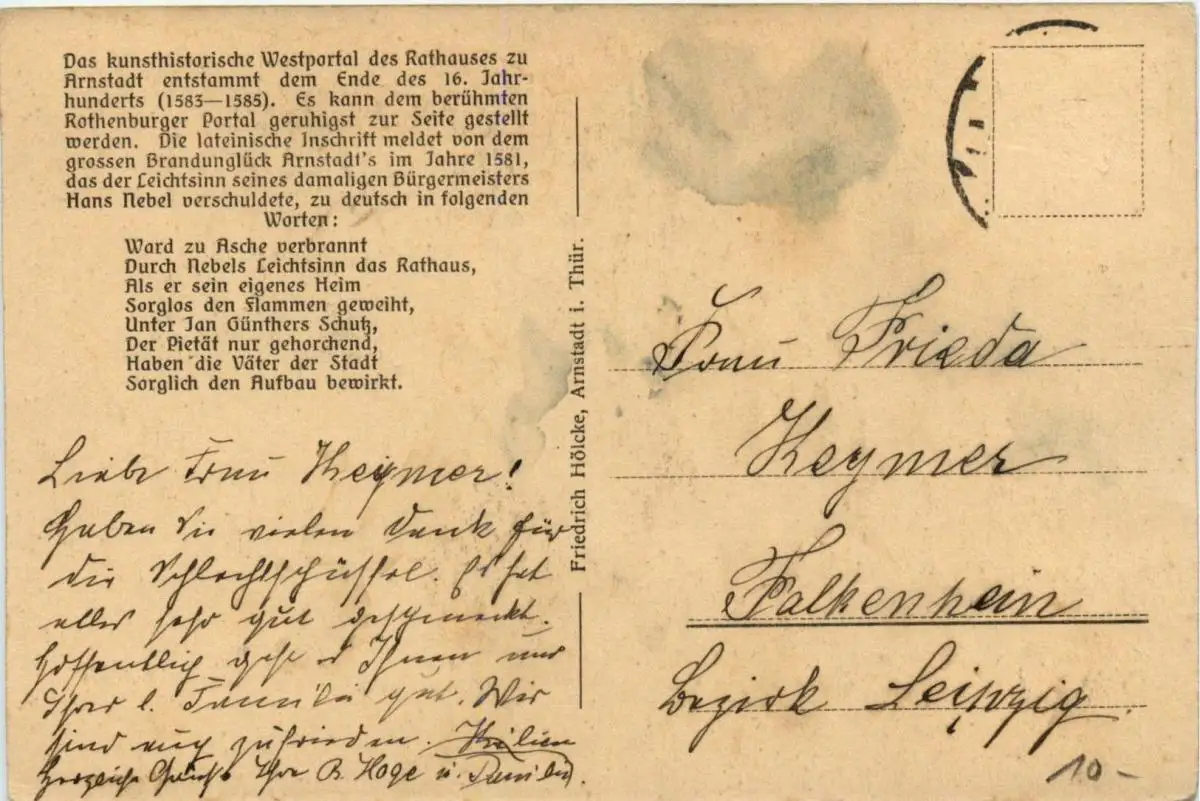 Das kunsthistorische Westportal des Rathauses zu
Arnstadt entstammt dem Ende des 16. Jahr-
hunderts (1583—1585). Es kann dem berühmten
Rothenburger Portal geruhigst zur Seite gestellt
werden. Die lateinische Inschrift meldet von dem
grossen Brandunglück Arnstadt's im Jahre 1581,
das der Leichtsinn seines damaligen Bürgermeisters
Hans Nebel verschuldete, zu deutsch in folgenden
Worten:
Ward zu Asche verbrannt
Durch Nebels Leichtsinn das Rathaus,
Als er sein eigenes Heim
Sorglos den Flammen geweiht,
Unter Jan Günthers Schutz,
Der Pietät nur gehorchend,
Haben die Väter der Stadt
Sorglich den Aufbau bewirkt.
Liebe Frau Keymer!
Haben Sie vielen Dank für
die Schlachtschüssel. Es hat
alles sehr gut geschmeckt.
Hoffentlich geht es Ihnen und
Ihrer l. Familie gut. Wir
sind auch zufrieden.
Herzliche Grüße Ihre R. Hoge u. Familie.
Friedrich Hölcke, Arnstadt i. Thür.
Frau Frieda
Keymer
Falkenhain
Bezirk Leipzig.
10-